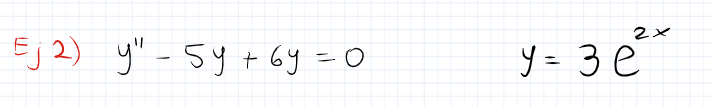 Ej 2) y'' - 5y + 6y = 0 y = 3e^{2x}